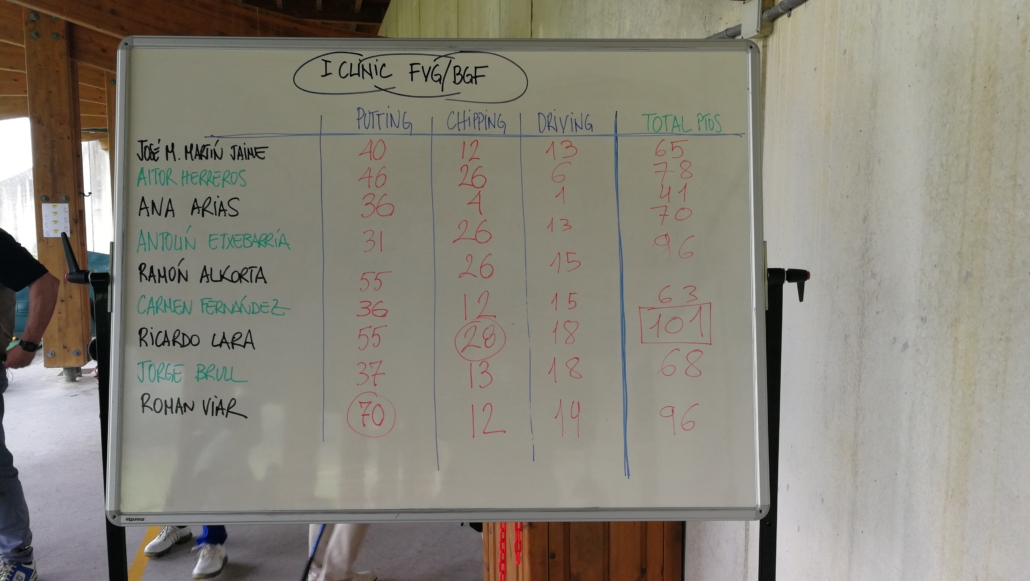 I CLINIC FVG/BGF
PUTTING CHIPPING DRIVING TOTAL PTOS
JOSÉ M. MARTÍN JAINE 40 12 13 65
AITOR HERREROS 46 26 6 78
ANA ARIAS 36 4 1 41
ANTOLÍN ETXEBARRÍA 31 26 13 70
RAMÓN ALKORTA 55 26 15 96
CARMEN FERNÁNDEZ 36 12 15 63
RICARDO LARA 55 28 18 101
JORGE BRULL 37 13 18 68
ROMAN VIAR 70 12 14 96